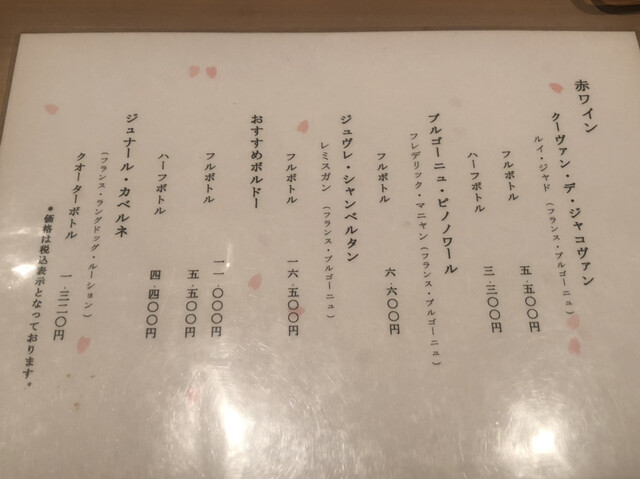 赤ワイン
クーヴァン・デ・ジャコヴァン
ルイ・ジャド (フランス・ブルゴーニュ)
フルボトル 五.五〇〇円
ハーフボトル 三.三〇〇円
ブルゴーニュ・ピノノワール
フレデリック・マニャン(フランス・ブルゴーニュ)
フルボトル 六.六〇〇円
ジュヴレ・シャンベルタン
レミスガン (フランス・ブルゴーニュ)
フルボトル 一六.五〇〇円
おすすめボルドー
フルボトル 一一.〇〇〇円
五.五〇〇円
ハーフボトル 四.四〇〇円
ジュナール・カベルネ
(フランス・ラングドッグ・ルーション)
クオーターボトル 一.三二〇円
*価格は税込表示となっております。